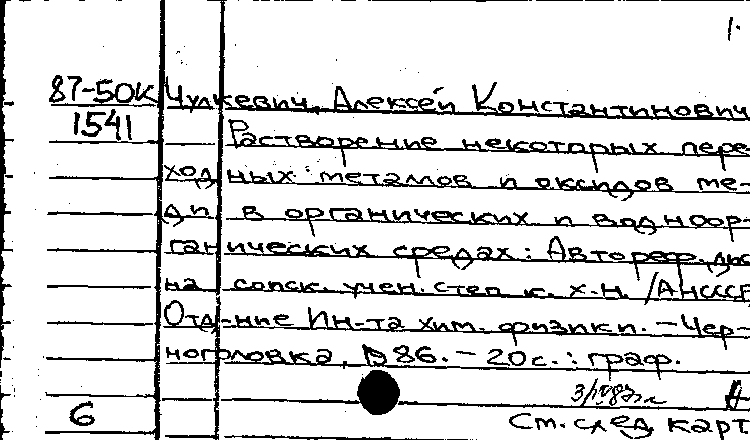 1.
87-50к Чулкевич, Алексей Константинович
1541 Растворение некоторых пере-
ходных металлов и оксидов ме-
ди в органических и водноор-
ганических средах: Автореф. дис
на соиск. учен. степ. к. х.н. /АН СССР
Отд-ние Ин-та хим. физики. - Чер-
ноголовка, 1986. - 20 с.: граф.
6 См. след. карт